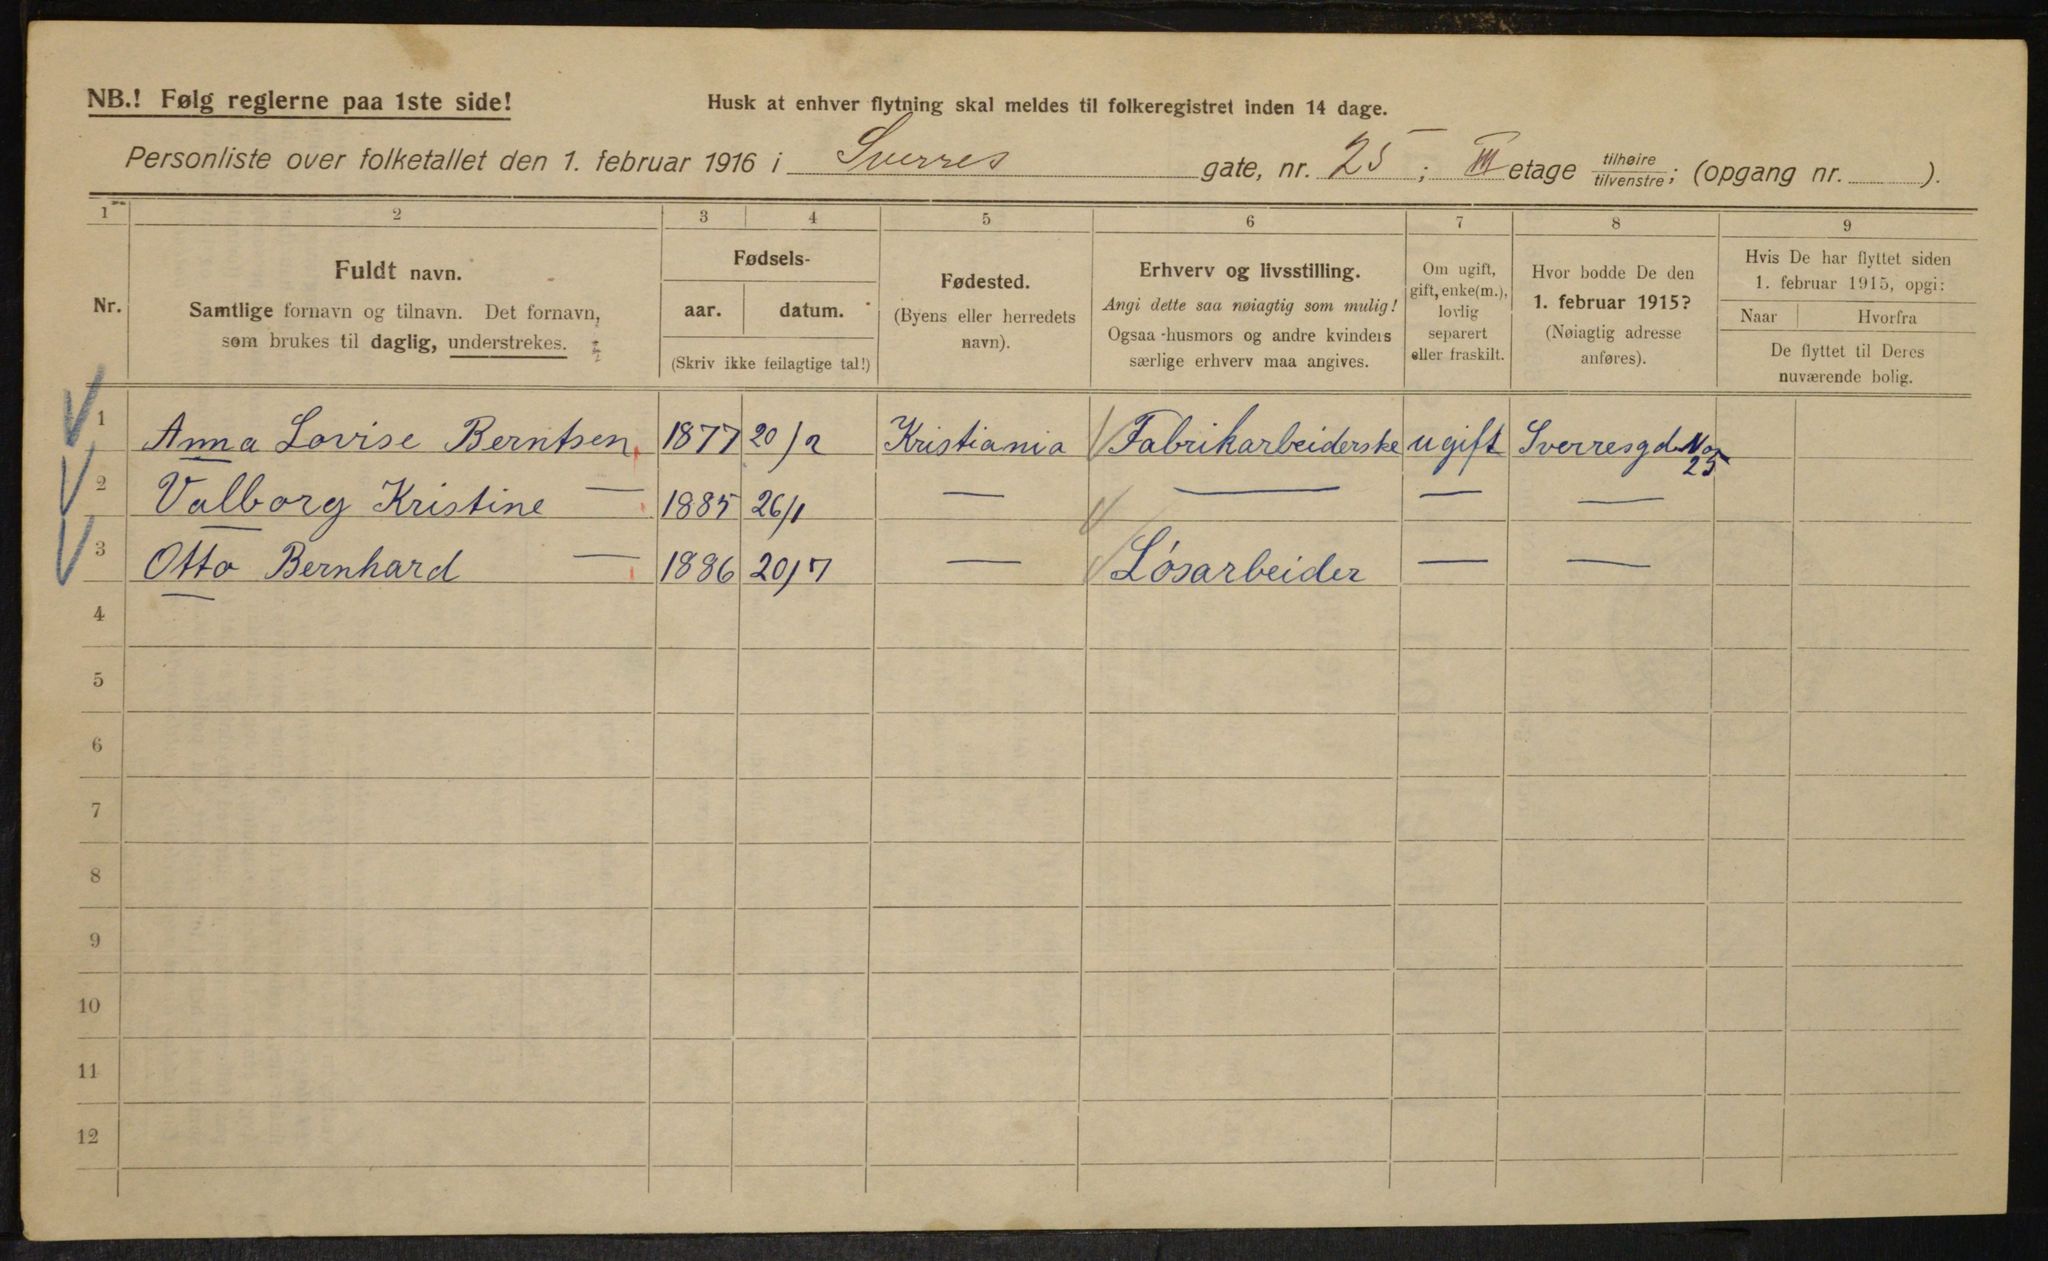 NB.! Følg reglerne paa 1ste side!
Husk at enhver flytning skal meldes til folkeregistret inden 14 dage.
Personliste over folketallet den 1. februar 1916 i Sverres gate, nr. 25 ; III etage tilhøire/tilvenstre; (opgang nr. ).
1 2 3 4 5 6 7 8 9
Nr.
Fuldt navn.
Samtlige fornavn og tilnavn. Det fornavn,
som brukes til daglig, understrekes.
Fødsels-
aar. datum.
(Skriv ikke feilagtige tal!)
Fødested.
(Byens eller herredets
navn).
Erhverv og livsstilling.
Angi dette saa nøiagtig som mulig!
Ogsaa husmors og andre kvinders
særlige erhverv maa angives.
Om ugift,
gift, enke(m.),
lovlig
separert
eller fraskilt.
Hvor bodde De den
1. februar 1915?
(Nøiagtig adresse
anføres).
Hvis De har flyttet siden
1. februar 1915, opgi:
Naar Hvorfra
De flyttet til Deres
nuværende bolig.
1 Anna Lovise Berntsen 1877 20/2 Kristiania Fabrikarbeiderske ugift Sverresgd No 25
2 Valborg Kristine — 1885 26/1 — — — —
3 Otto Bernhard — 1886 20/7 — Løsarbeider — —
4
5
6
7
8
9
10
11
12